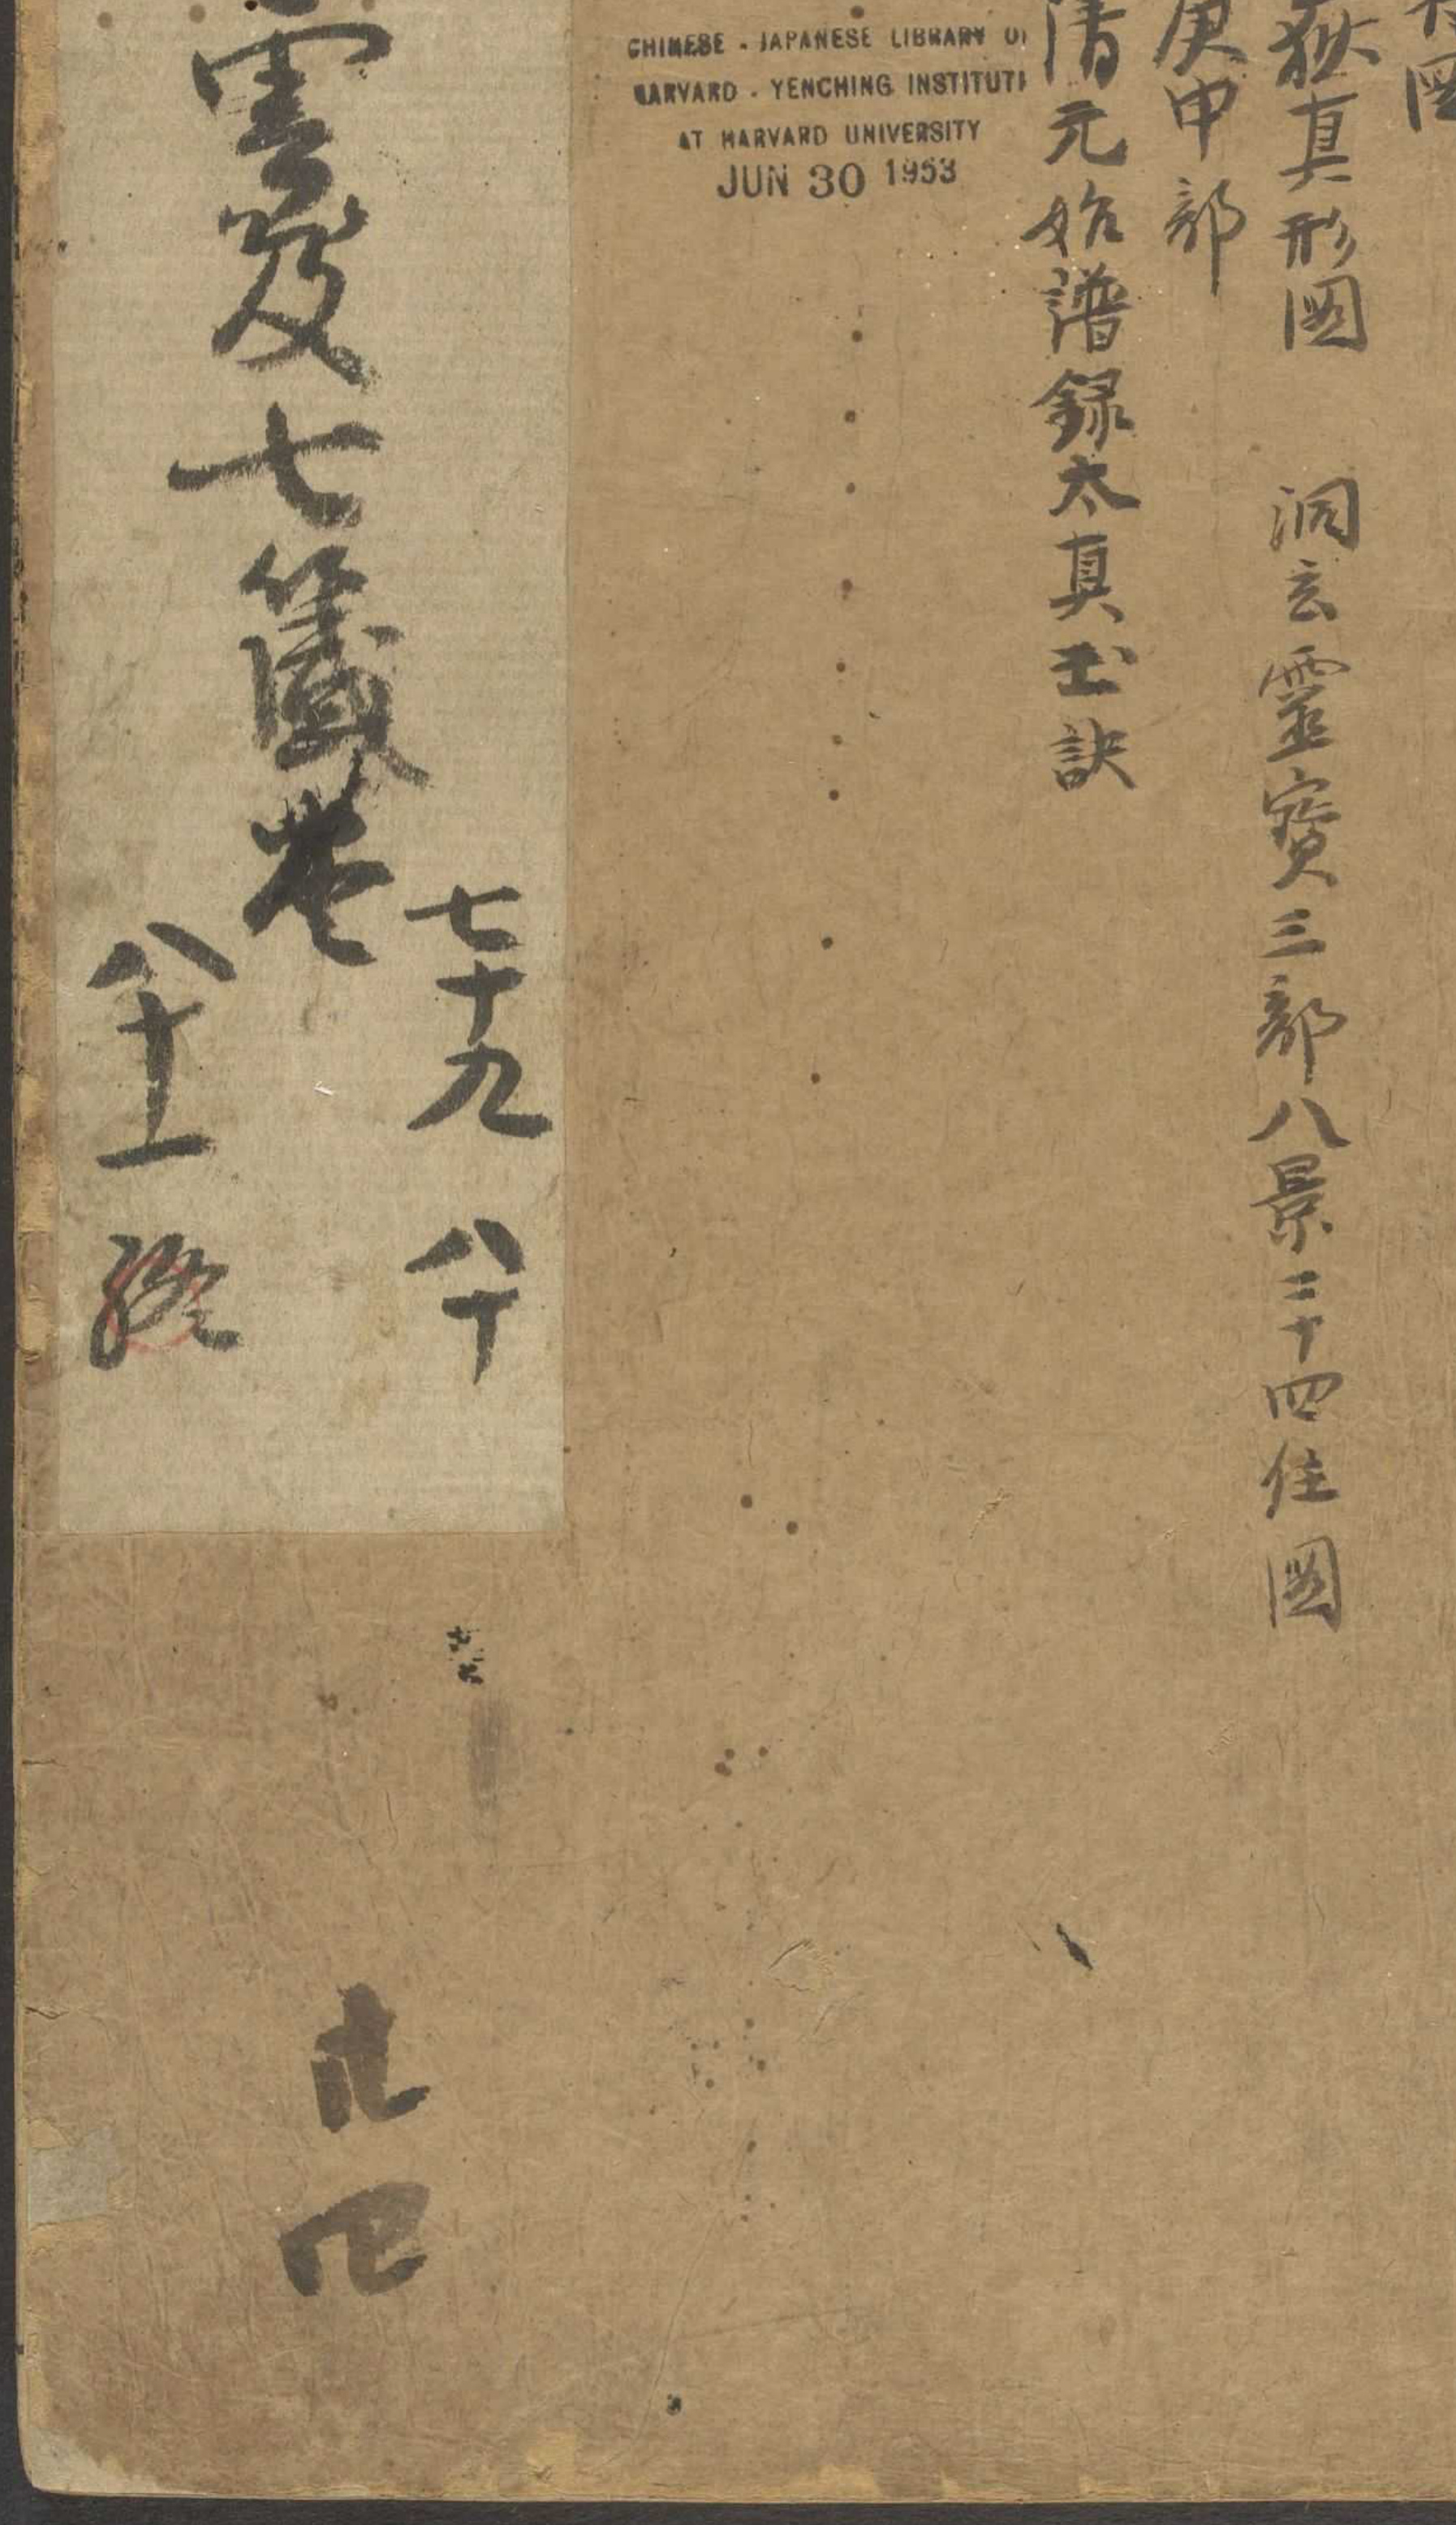 圖
嶽真形圖 洞玄靈寶三部八景二十四住圖
庚申部
清元始譜錄太真玉訣
CHINESE - JAPANESE LIBRARY OF
HARVARD - YENCHING INSTITUTE
AT HARVARD UNIVERSITY
JUN 30 1953
雲笈七籤卷
七十九 八十
八十一 終